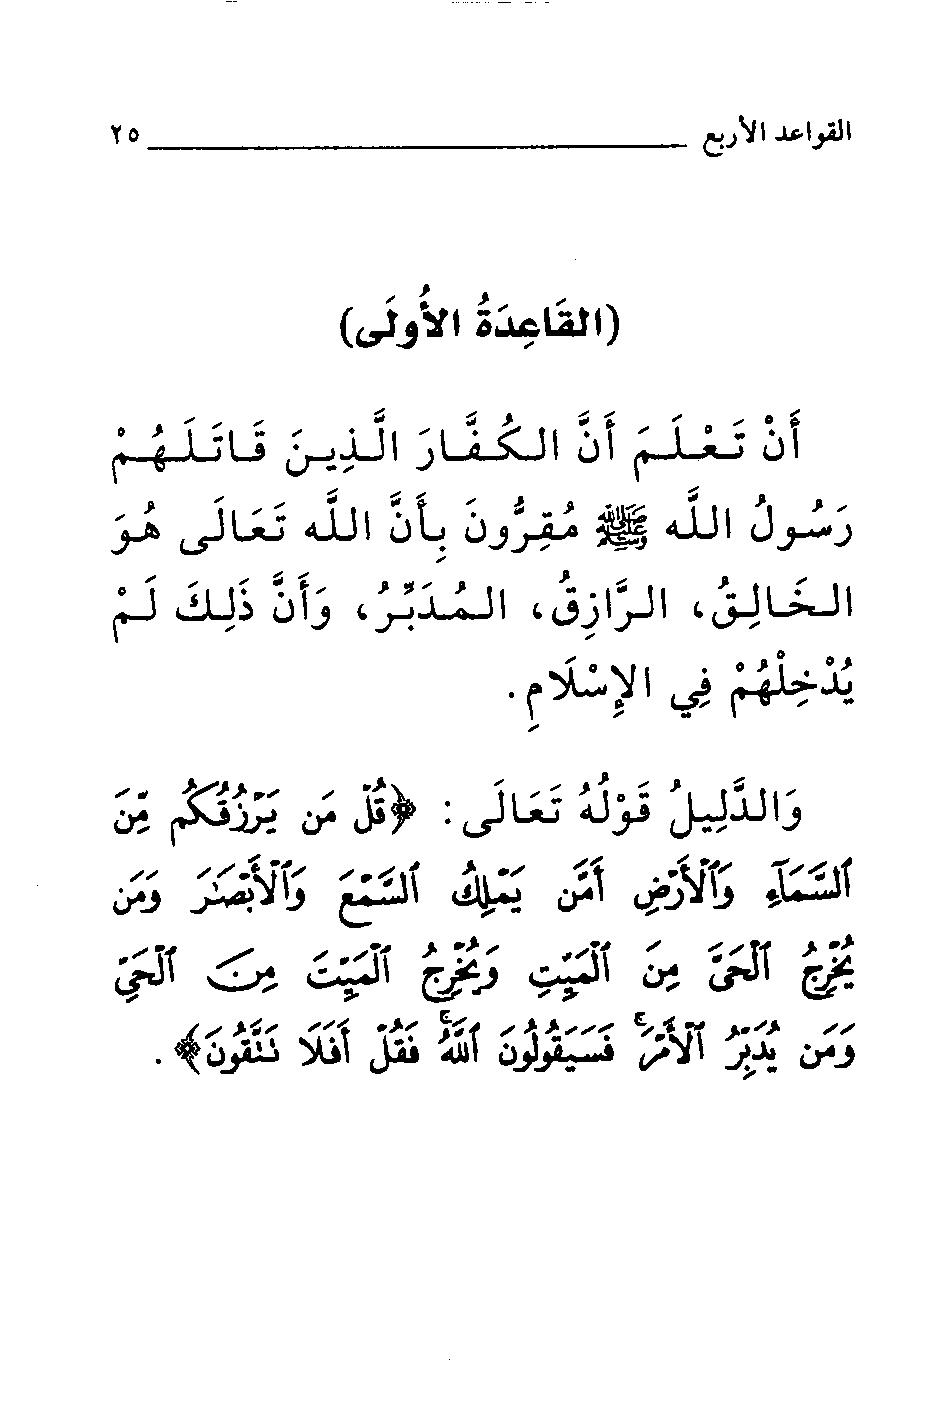 القواعد الأربع ٢٥
(القَاعِدَةُ الأُولَى)
أَنْ تَعْلَمَ أَنَّ الكُفَّارَ الَّذِينَ قَاتَلَهُمْ
رَسُولُ اللَّه ﷺ مُقِرُّونَ بِأَنَّ اللَّه تَعَالَى هُوَ
الخَالِقُ، الرَّازِقُ، المُدَبِّرُ، وَأَنَّ ذَلِكَ لَمْ
يُدْخِلْهُمْ فِي الإِسْلَامِ.
وَالدَّلِيلُ قَوْلُهُ تَعَالَى: ﴿قُلْ مَن يَرْزُقُكُم مِّنَ
ٱلسَّمَآءِ وَٱلْأَرْضِ أَمَّن يَمْلِكُ ٱلسَّمْعَ وَٱلْأَبْصَـٰرَ وَمَن
يُخْرِجُ ٱلْحَىَّ مِنَ ٱلْمَيِّتِ وَيُخْرِجُ ٱلْمَيِّتَ مِنَ ٱلْحَيِّ
وَمَن يُدَبِّرُ ٱلْأَمْرَ ۚ فَسَيَقُولُونَ ٱللَّهُ ۚ فَقُلْ أَفَلَا تَتَّقُونَ﴾.